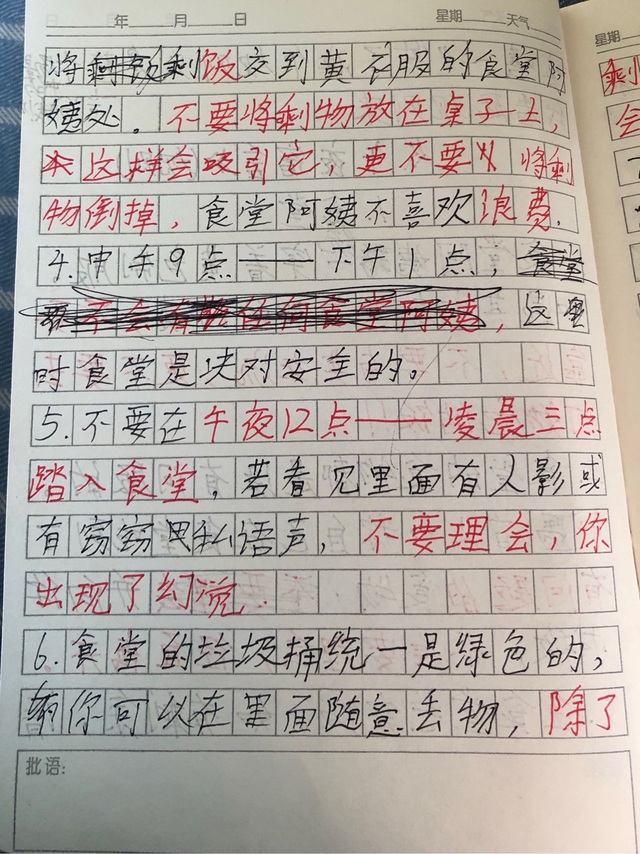 年 月 日 星期 天气
星期
将剩饭交到黄衣服的食堂阿
姨处。不要将剩物放在桌子上,
这样会吸引它,更不要将剩
物倒掉,食堂阿姨不喜欢浪费.
4.中午9点——下午1点,食堂
不会有任何食堂阿姨,这
时食堂是决对安全的。
5.不要在午夜12点——凌晨三点
踏入食堂,若看见里面有人影或
有窃窃思私语声,不要理会,你
出现了幻觉.
6.食堂的垃圾捅统一是绿色的,
你可以在里面随意丢物,除了
批语: